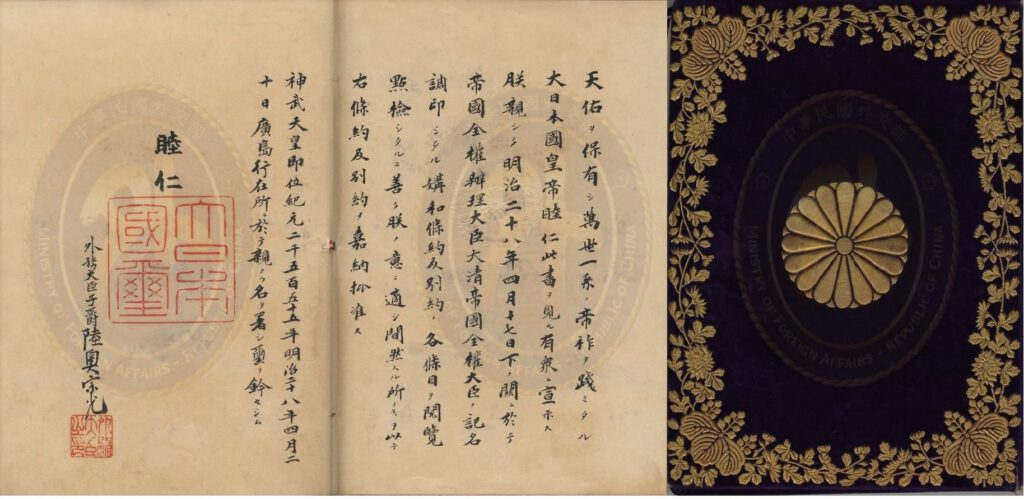 天佑ヲ保有シ萬世一系ノ帝祚ヲ踐ミタル
大日本國皇帝睦仁此書ヲ見ル有衆ニ宣示ス
朕親シク明治二十八年四月十七日下ノ關ニ於テ
帝國全權辦理大臣大清帝國全權大臣ノ記名
調印シタル媾和條約及別約ノ各條目ヲ閱覽
點檢シタルニ善ク朕ノ意ニ適シ間然スル所ナキヲ以テ
右條約及別約ヲ嘉納批准ス
神武天皇即位紀元二千五百五十五年明治二十八年四月二
十日廣島行在所ニ於テ親ラ名ヲ署シ璽ヲ鈐セシム
睦仁
大日本國璽
外務大臣子爵陸奧宗光
中華民國外交部
MINISTRY OF FOREIGN AFFAIRS - REPUBLIC OF CHINA